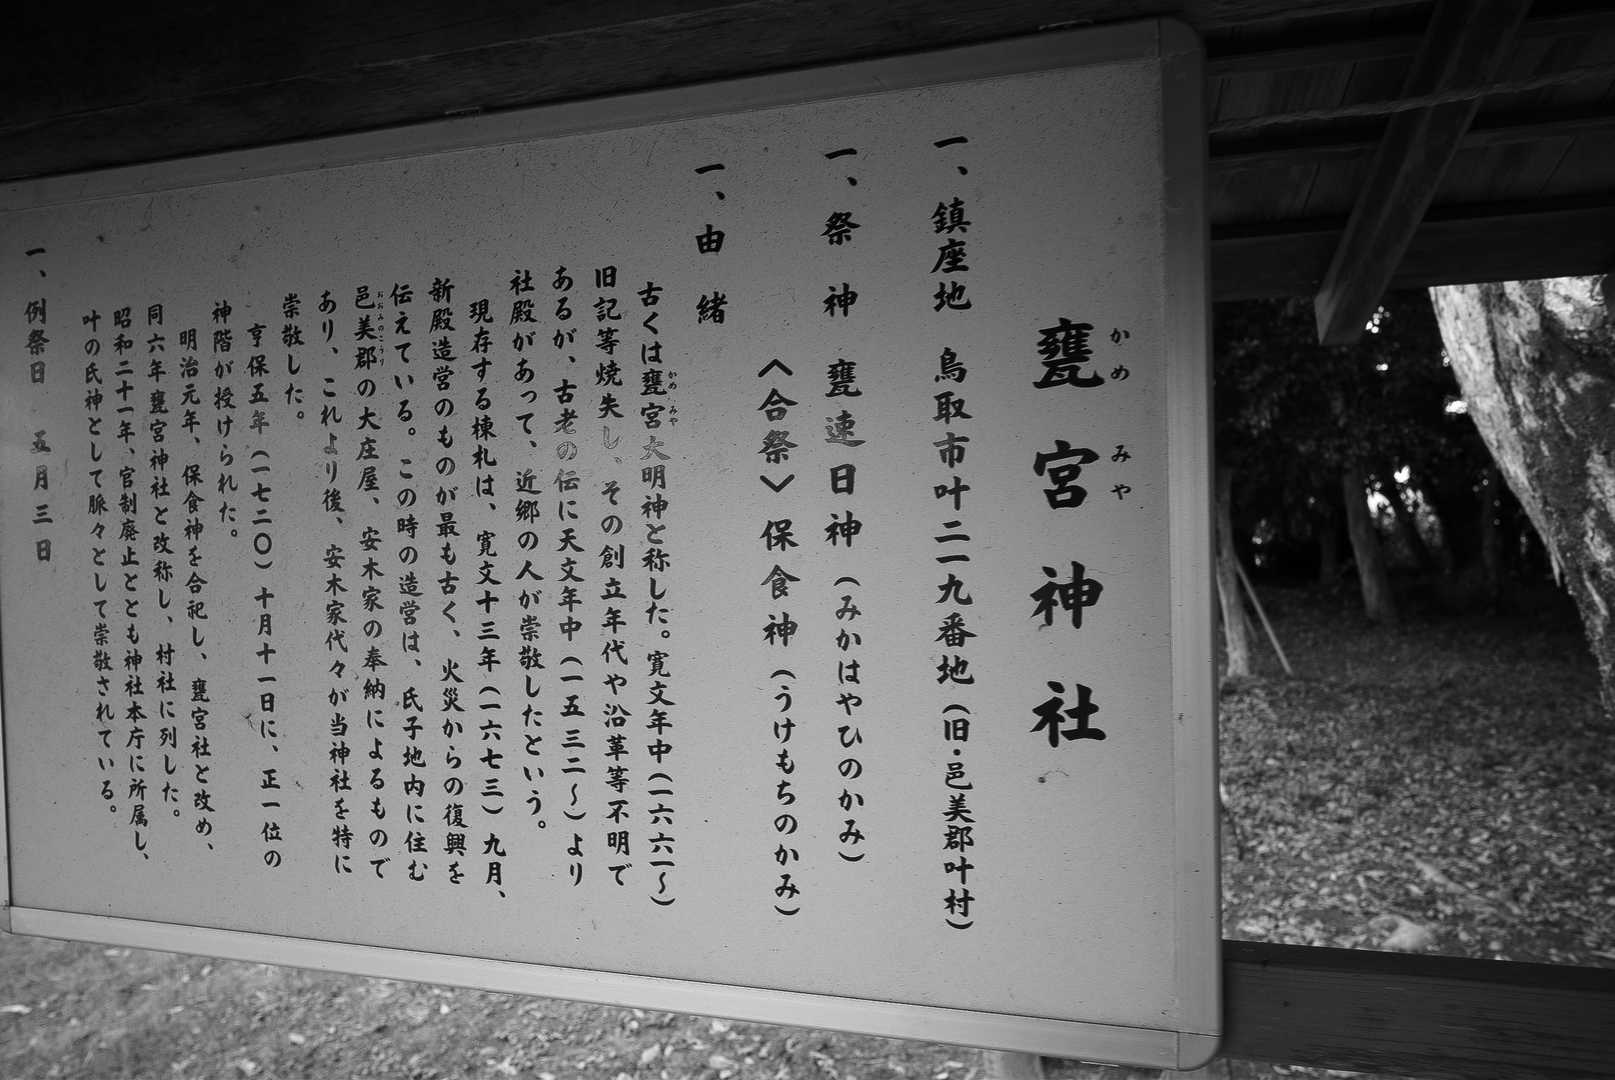 甕宮神社
かめみや
一、鎮座地　鳥取市叶二一九番地（旧・邑美郡叶村）
一、祭　神　甕速日神（みかはやひのかみ）
〈合祭〉保食神（うけもちのかみ）
一、由　緒
古くは甕宮大明神と称した。寛文年中（一六六一〜）
かめ・みや
旧記等焼失し、その創立年代や沿革等不明で
あるが、古老の伝に天文年中（一五三二〜）より
社殿があって、近郷の人が崇敬したという。
現存する棟札は、寛文十三年（一六七三）九月、
新殿造営のものが最も古く、火災からの復興を
伝えている。この時の造営は、氏子地内に住む
邑美郡の大庄屋、安木家の奉納によるもので
おおみのこうり
あり、これより後、安木家代々が当神社を特に
崇敬した。
亨保五年（一七二〇）十月十一日に、正一位の
神階が授けられた。
明治元年、保食神を合祀し、甕宮社と改め、
同六年甕宮神社と改称し、村社に列した。
昭和二十一年、官制廃止ととも神社本庁に所属し、
叶の氏神として脈々として崇敬されている。
一、例祭日　五月三日